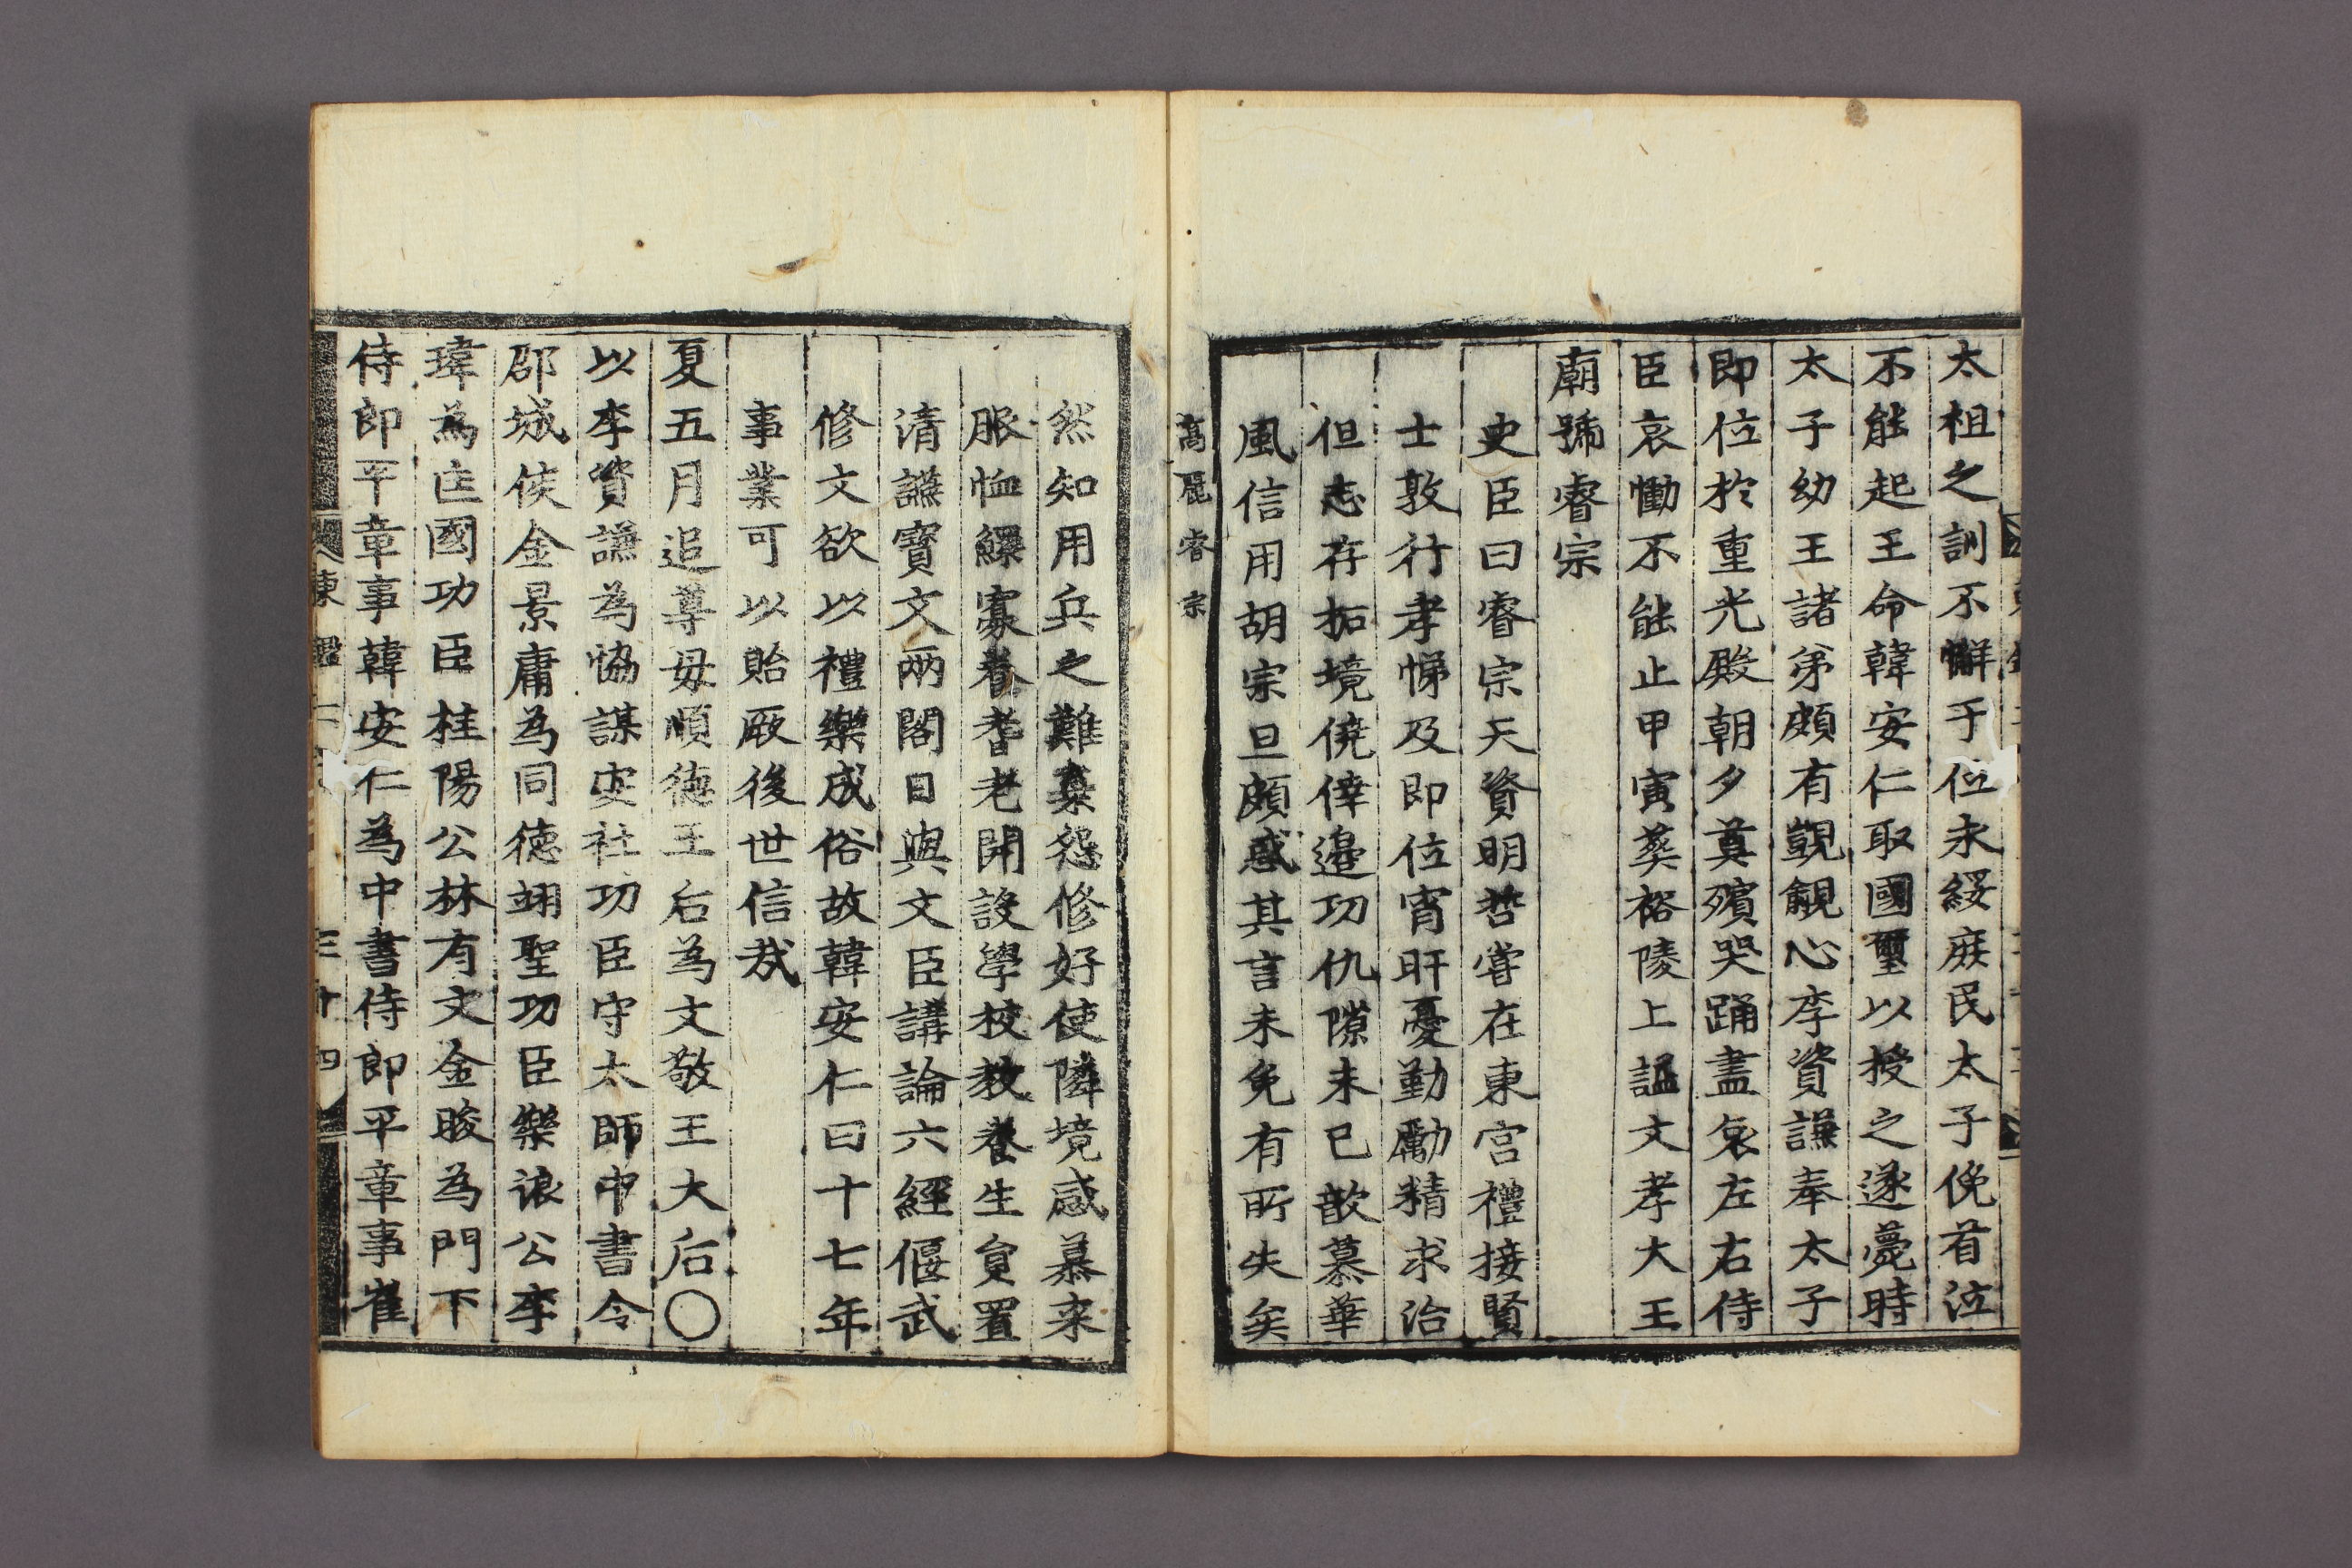 太祖之訓不懈于位永綏庶民太子俛首泣
不能起王命韓安仁取國璽以授之遂薨時
太子幼王諸弟頗有覬覦心李資謙奉太子
即位於重光殿朝夕奠殯哭踊盡哀左右侍
臣哀慟不能止甲寅葬裕陵上諡文孝大王
廟號睿宗
史臣曰睿宗天資明哲嘗在東宮禮接賢
士敦行孝悌及即位宵旰憂勤勵精求治
但志存拓境僥倖邊功仇隙未已歆慕華
風信用胡宗旦頗惑其言未免有所失矣
高麗睿宗
然知用兵之難棄怨修好使隣境感慕來
服恤鰥寡養耆老開設學校教養生員置
清讌寶文兩閣日與文臣講論六經偃武
修文欲以禮樂成俗故韓安仁曰十七年
事業可以貽厥後世信哉
夏五月追尊母順德王后為文敬王大后〇
以李資謙為協謀安社功臣守太師中書令
邵城侯金景庸為同德翊聖功臣樂浪公李
瑋為匡國功臣桂陽公林有文金晙為門下
侍郎平章事韓安仁為中書侍郎平章事崔
東鑑 三十四